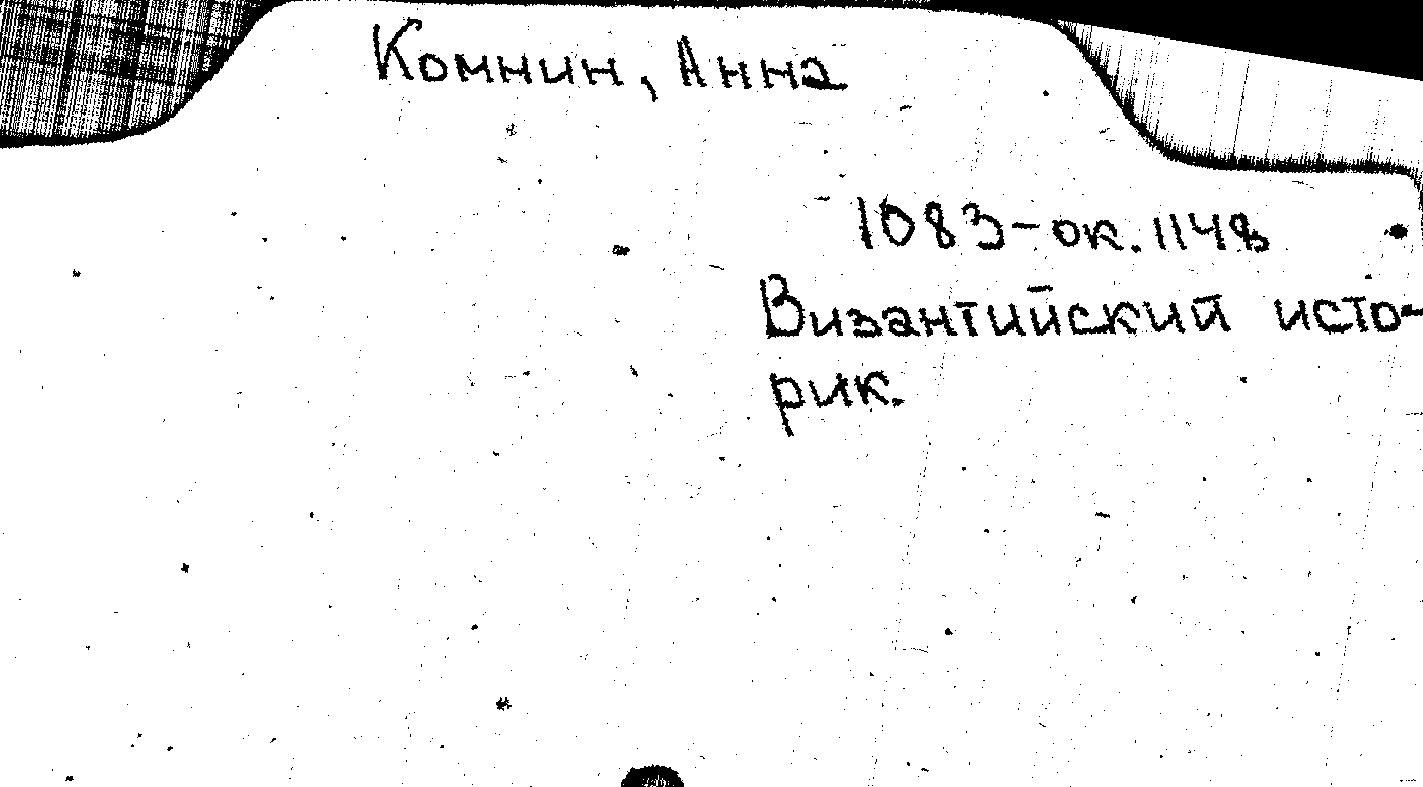 Комнин, Анна
1083-ок.1148
Византийский исто-
рик.